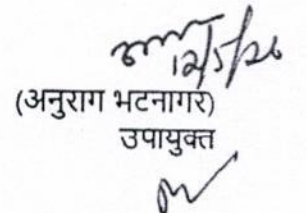 12/5/26
(अनुराग भटनागर)
उपायुक्त